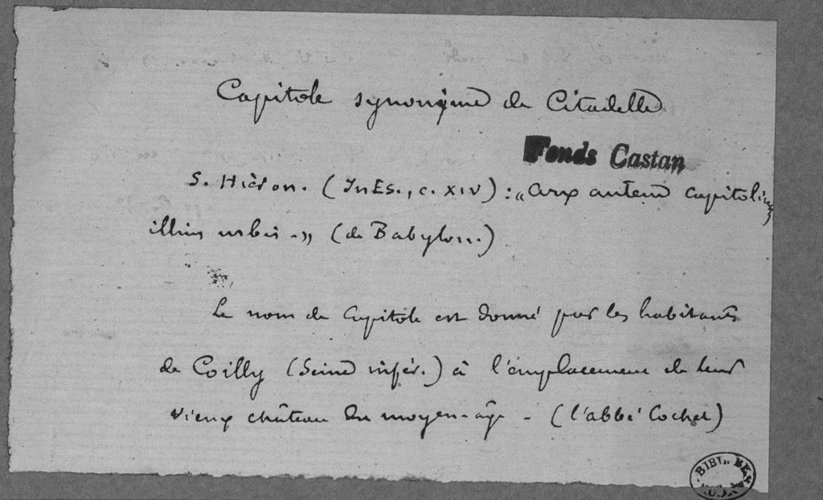 Capitole synonyme de Citadelle
Fonds Castan
S. Hièron. (In Es., c. XIV) : „arx autem capitolium
illius urbis." (de Babylon.)
Le nom de Capitole est donné par les habitants
de Coilly (Seine infér.) à l'emplacement de leur
vieux château du moyen-âge - (l'abbé Cochet)
BIBL DE